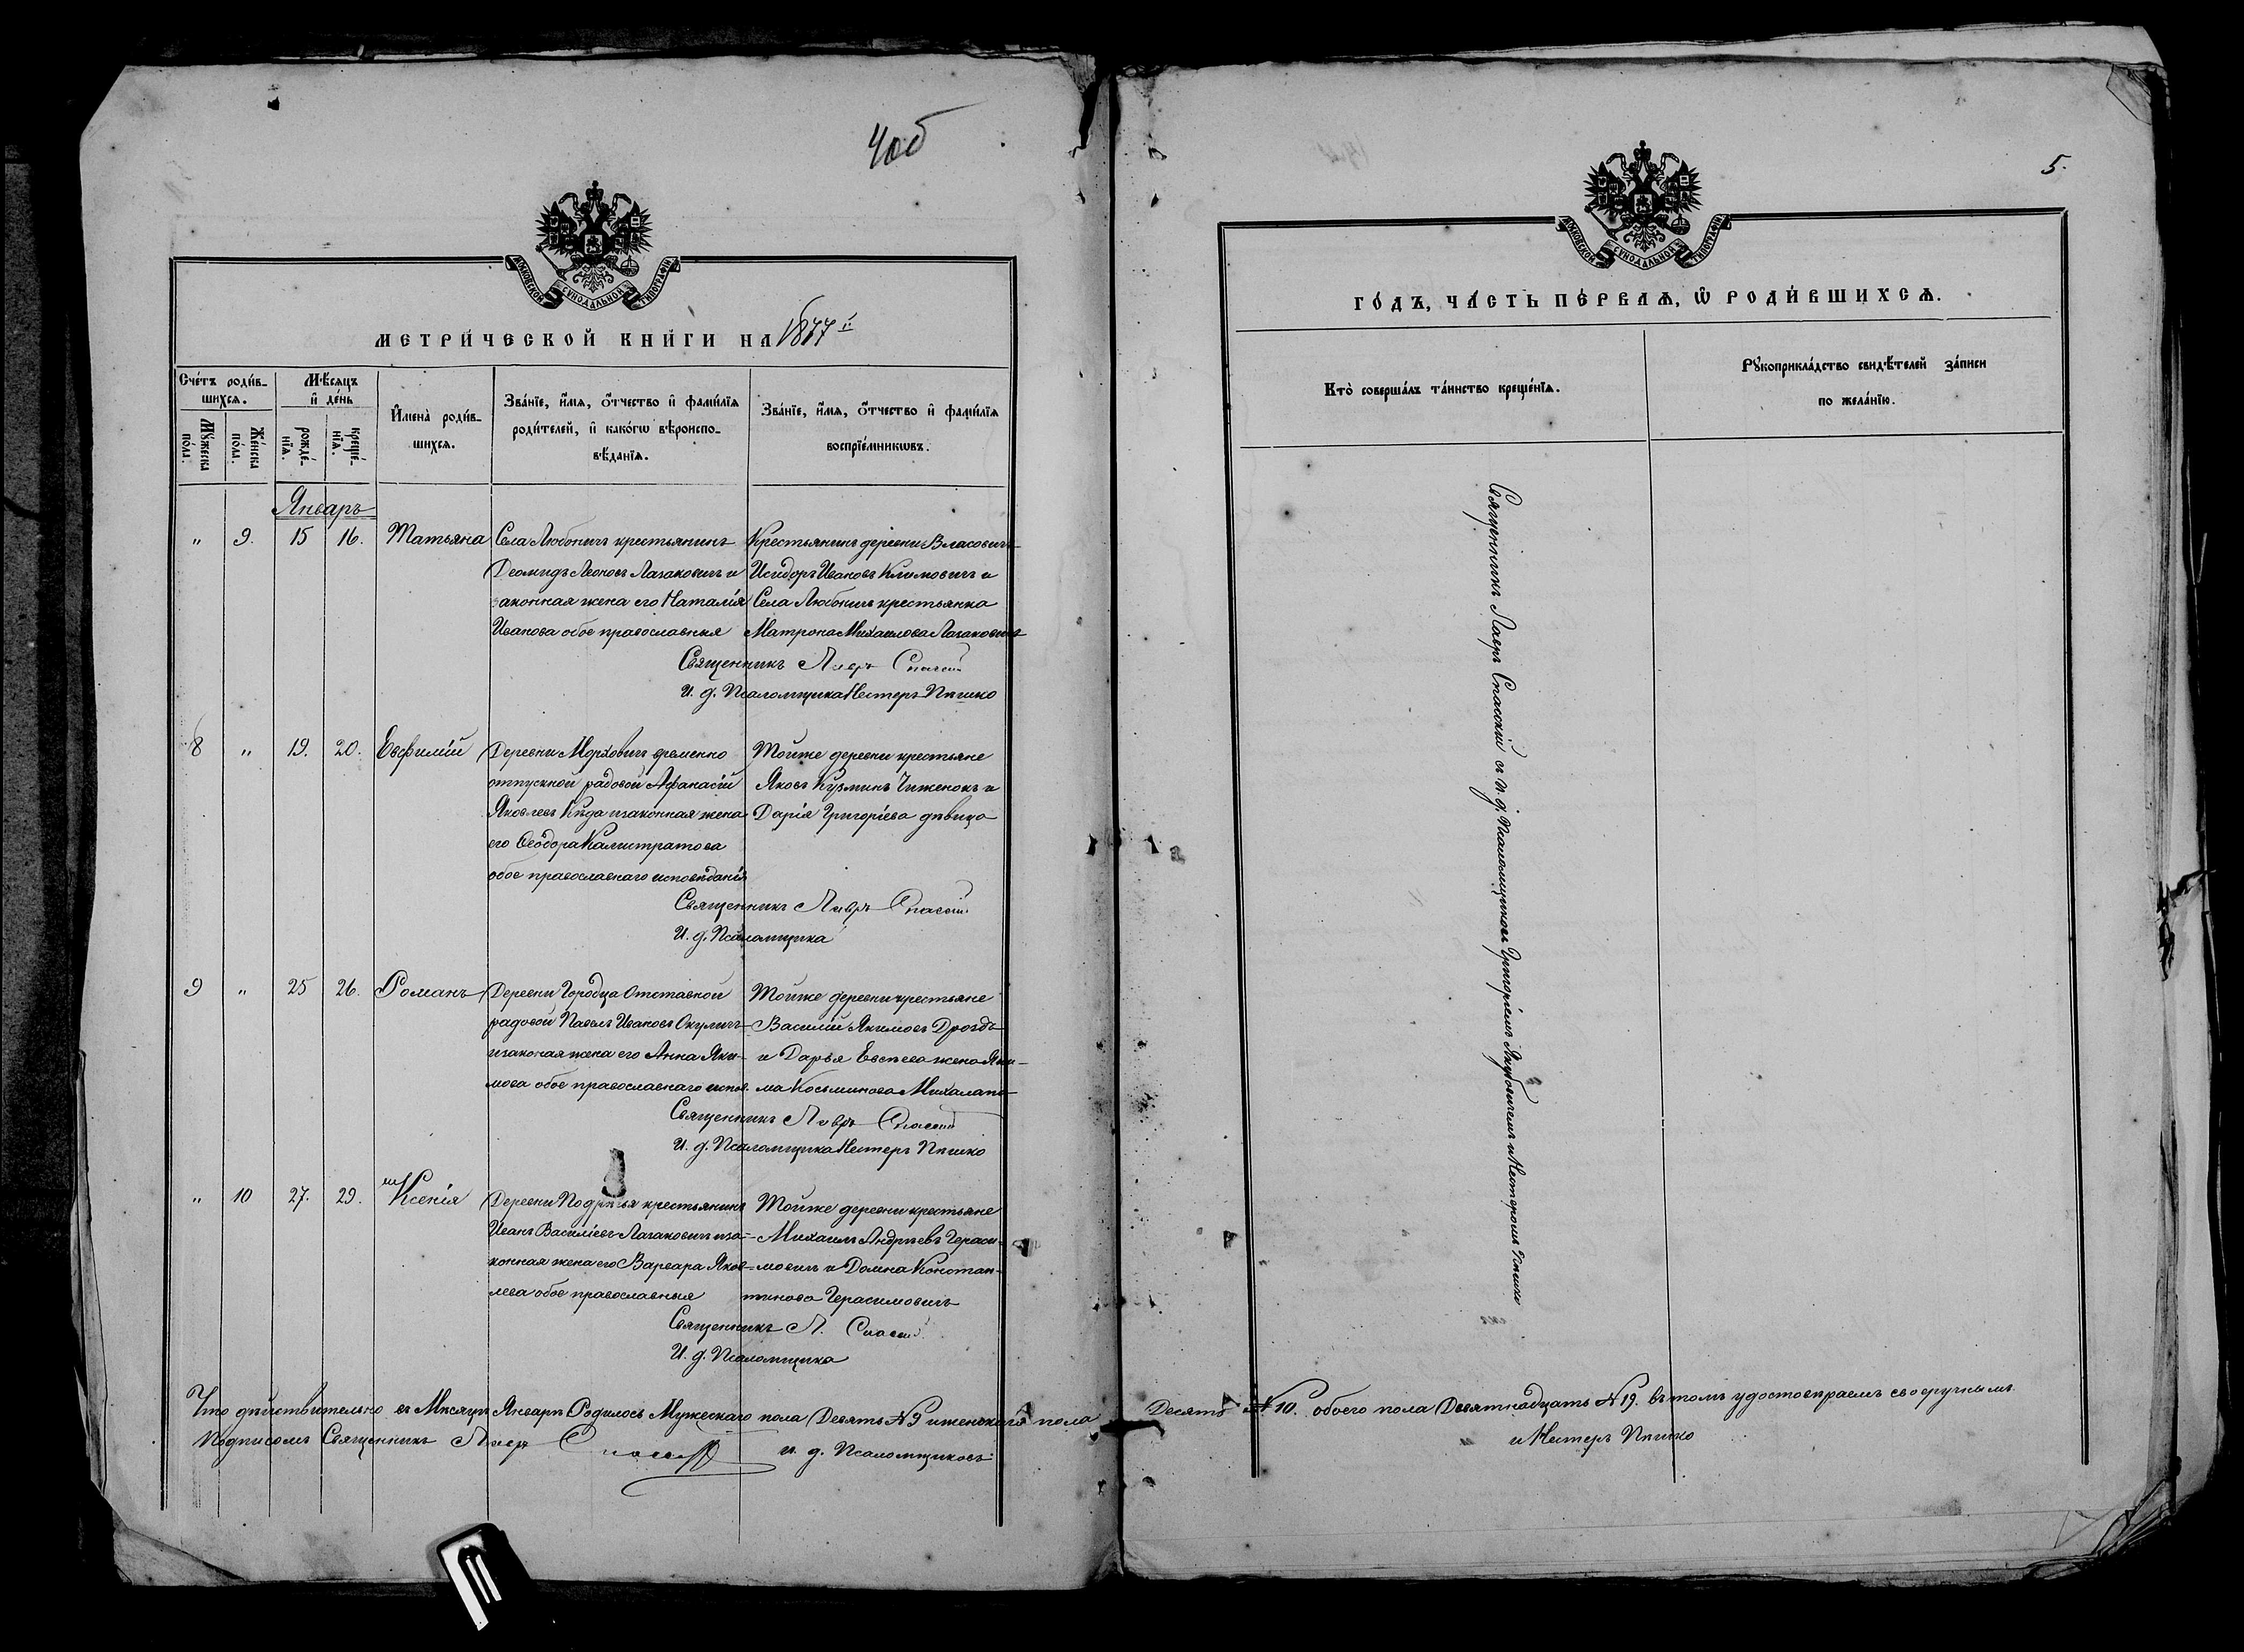 4об
МОСКОВСКОЙ СѴНОДАЛЬНОЙ ТИПОГРАФІИ
МЕТРИ́ЧЕСКОЙ КНИ́ГИ НА 1877 й
Сче́тъ роди́в-
шихсѧ.
Мѣ́сѧцъ
и҆ де́нь
Мꙋ́жеска
по́ла.
Же́нска
по́ла.
рожде́-
нїѧ.
креще́-
нїѧ.
И҆мена̀ роди́в-
шихсѧ.
Зва́нїе, и҆́мѧ, ѻ҆́тчество и҆ фами́лїѧ
роди́телей, и҆ како́гѡ вѣроиспо-
вѣ́данїѧ.
Зва́нїе, и҆́мѧ, ѻ҆́тчество и҆ фами́лїѧ
воспрїе́мникѡвъ.
Январь
" 9. 15 16. Татьяна
Села Любоничъ крестьянинъ
Деомидъ Леоновъ Лагаковичъ и
законная жена его Наталія
Иванова обое православныя
Крестьянинъ деревни Власовичъ
Исидоръ Ивановъ Климовичъ и
Села Любоничъ крестьянка
Матрона Михаилова Лагаковичъ
Священникъ Лавръ Спасскій
И. д. Псаломщика Несторъ Пышко
8 " 19. 20. Евфимій
Деревни Морховичъ временно
отпускной рядовой Афанасій
Яковлевъ и законная жена
его Ѳеодора Калистратова
обое православнаго исповѣданія
Тойже деревни крестьяне
Яковъ Кузминъ Чиженокъ и
Дарія Григоріева дѣвица
Священникъ Лавръ Спасскій
И. д. Псаломщика
9 " 25 26. Романъ
Деревни Городца Отставной
рядовой Павелъ Ивановъ Окуличъ
изаконая жена его Анна Яки-
мова обое православнаго испов.
Тойже деревни крестьяне
Василій Якимовъ Дроздъ
и Дарья Евсѣева жена Яки-
ма Косьминова
Священникъ Лавръ Спасскій
И. д. Псаломщика Несторъ Пышко
" 10 27. 29. Ксенія
Деревни Подрѣчья крестьянинъ
Иванъ Василіевъ Лагаковичъ иза-
конная жена его Варвара Яков-
лева обое православныя
Тойже деревни крестьяне
Михаилъ Андрѣевъ Гераси-
мовичъ и Домна Констан-
тинова Герасимовичъ
Священникъ Л. Спасскій
И. д. Псаломщика
Что дѣйствительно въ Мѣсяцѣ Январѣ Родилось Мужескаго пола Девять № 9 иженскаго пола
Подписомъ Священникъ Лавръ Спасскій и. д. Псаломщиковъ
5.
МОСКОВСКОЙ СѴНОДАЛЬНОЙ ТИПОГРАФІИ
ГО́ДЪ, ЧА́СТЬ ПЕ́РВАѦ, Ѡ҆ РОДИ́ВШИХСѦ.
Кто̀ соверша́лъ та́инство креще́нїѧ.
Рꙋкоприкла́дство свидѣ́телей за́писи
по жела́нїю.
Священникъ Лавръ Спасскій съ и. д. Псаломщиковъ Григоріемъ Якубовичемъ и Несторомъ Пышко
Десять № 10. обоего пола Девятнадцать № 19. въ томъ удостовѣряемъ своеручнымъ
и Несторъ Пышко